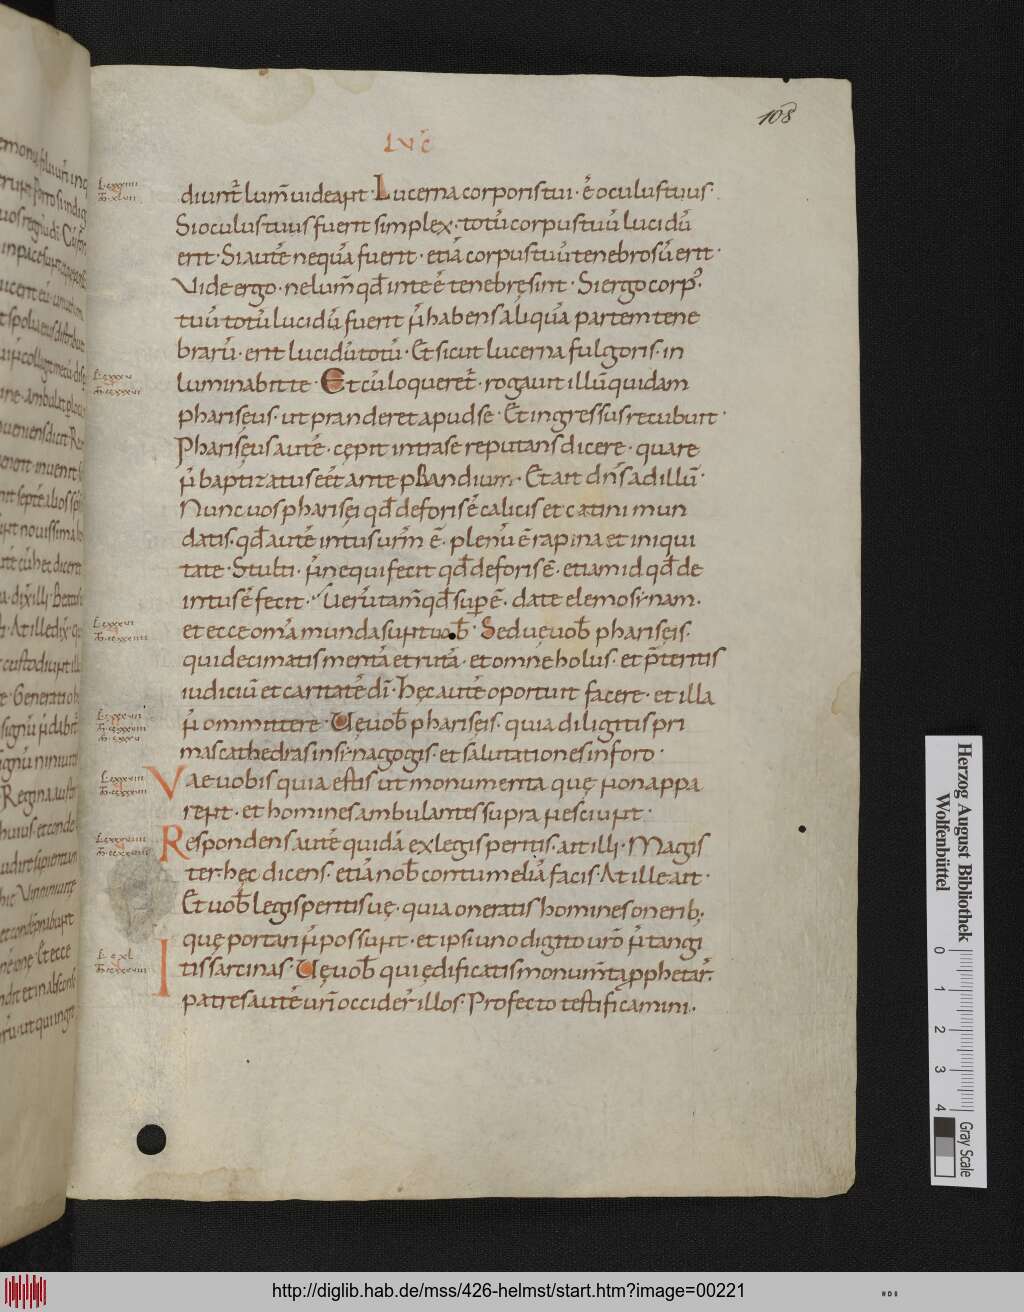 108
LVC
diunt̄ lum̄ uideant · Lucerna corporis tui · ē oculus tuus ·
Si oculus tuus fuerit simplex · totū corpus tuū lucidū
erit · Si autē nequā fuerit · etiā corpus tuū tenebrosū erit ·
Vide ergo · ne lum̄ qđ in te ē tenebrę sint · Si ergo corp᾽
tuū totū lucidū fuerit n̄ habens aliquā partem tene
brarū · erit lucidū totū · Et sicut lucerna fulgoris · in
luminabit te · Et cū loqueret̄ · rogauit illū quidam
pharisęus · ut pranderet apud se · Et ingressus recubuit ·
Pharisęus autē · cępit intra se reputans dicere · quare
n̄ baptizatus eēt ante prandium · Et ait dn̄s ad illū ·
Nunc uos pharisęi qđ deforis ē calicis et catini mun
datis · qđ autē intus ur̄m ē · plenū ē rapina et iniqui
tate · Stulti · n̄ne qui fecit qđ deforis ē · etiam id qđ de
intus ē fecit · Uerūtam̄ qđ supꝑ ē · date elemosinam ·
et ecce om̄a munda sunt uob̄ · Sed uę uob̄ pharisęis ·
qui decimatis mentā et rutā · et omne holus · et p̄teritis
iudiciū et caritatē dī · Hęc autē oportuit facere · et illa
n̄ ommittere · Uę uob̄ pharisęis · quia diligitis pri
mas cathedras in sinagogis · et salutationes in foro ·
Vae uobis quia estis ut monumenta quę non appa
rent · et homines ambulantes supra nesciunt ·
Respondens autē quidā ex legis peritis · ait illi · Magis
ter · hęc dicens · etiā nob̄ contumeliā facis · At ille ait ·
Et uob̄ legis peritis uę · quia oneratis homines onerib;
quę portari n̄ possunt · et ipsi uno digito uro᷎ n̄ tangi
tis sarcinas · Uę uob̄ qui ędificatis monum̄ta ꝓphetar̄ ·
patres autē ur̄i occider̄ illos · Profecto testificamini ·
Herzog August Bibliothek
Wolfenbüttel
0 1 2 3 4
Gray Scale
http://diglib.hab.de/mss/426-helmst/start.htm?image=00221